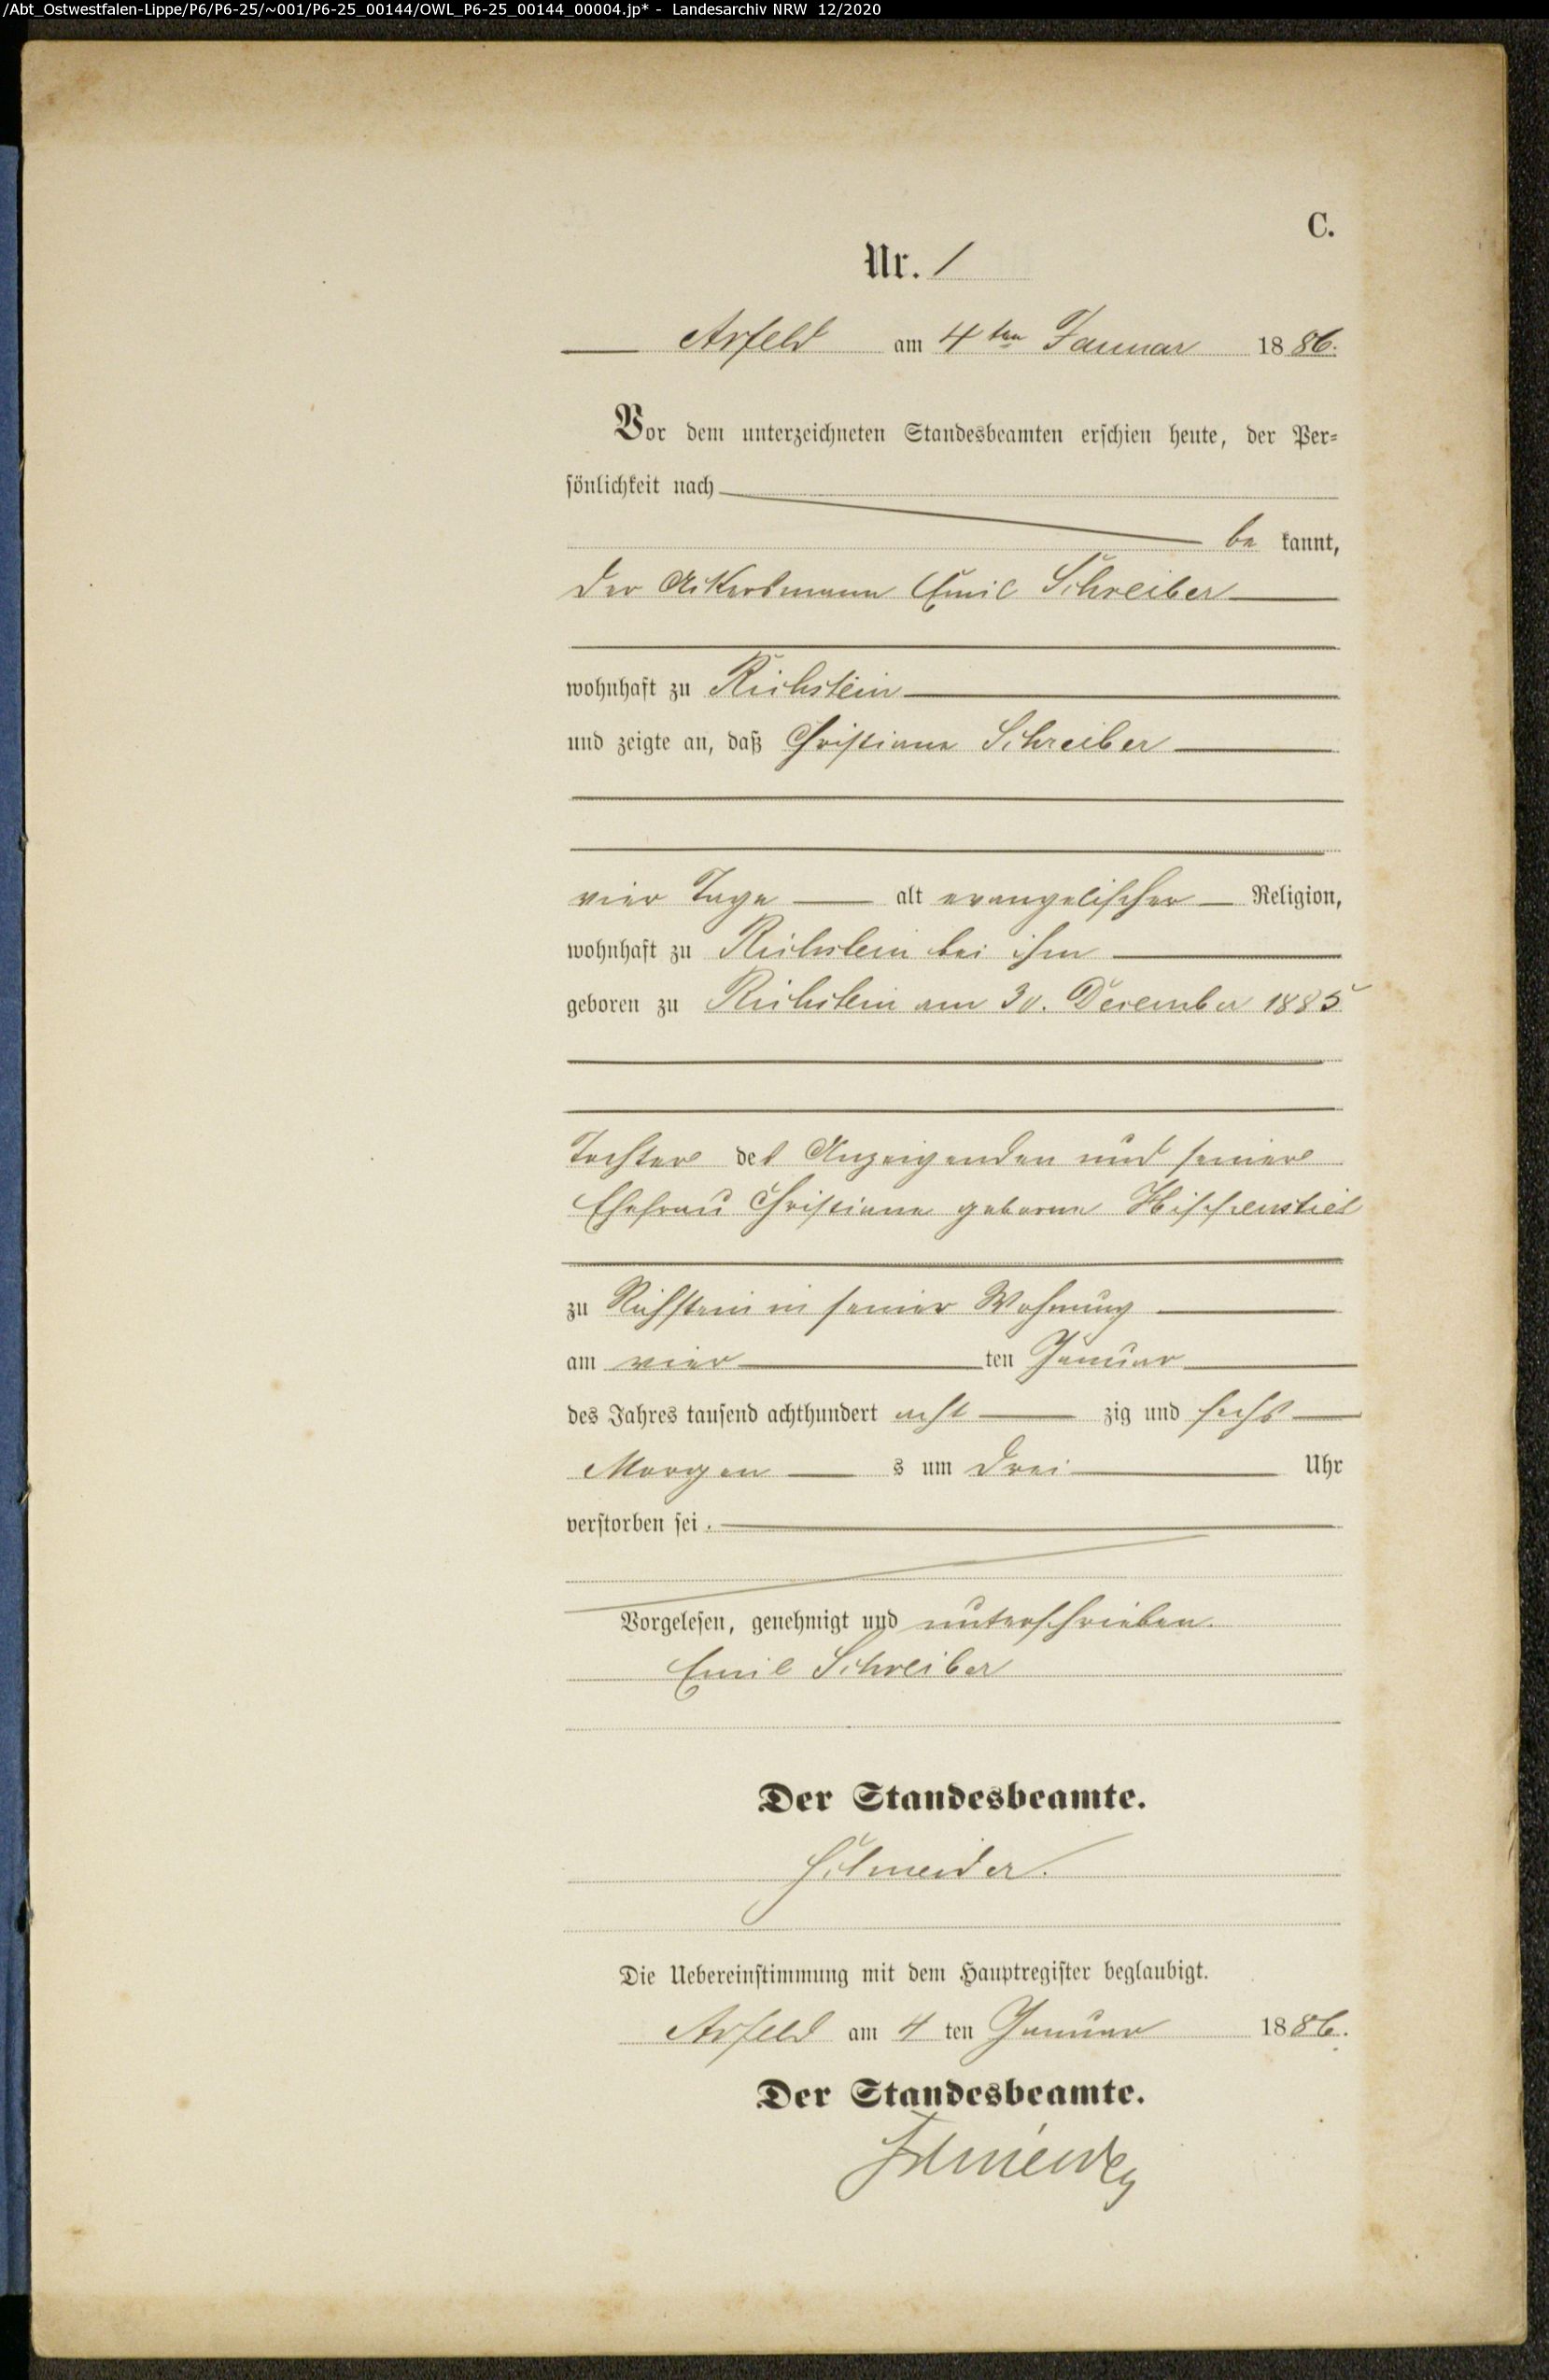 /Abt_Ostwestfalen-Lippe/P6/P6-25/~001/P6-25_00144/OWL_P6-25_00144_00004.jp* - Landesarchiv NRW 12/2020
C.
Nr. 1
Arfeld am 4ten Januar 1886.
Vor dem unterzeichneten Standesbeamten erschien heute, der Per-
sönlichkeit nach
be kannt,
der Ackersmann Emil Schreiber
wohnhaft zu Richstein
und zeigte an, daß Christiane Schreiber
vier Tage alt evangelischer Religion,
wohnhaft zu Richstein bei ihm
geboren zu Richstein am 30. December 1885
Tochter des Anzeigenden und seiner
Ehefrau Christiane geborne Hippenstiel
zu Richstein in seiner Wohnung
am vier ten Januar
des Jahres tausend achthundert acht zig und sechs
Morgen s um drei Uhr
verstorben sei.
Vorgelesen, genehmigt und unterschrieben.
Emil Schreiber
Der Standesbeamte.
Schneider.
Die Uebereinstimmung mit dem Hauptregister beglaubigt.
Arfeld am 4 ten Januar 1886.
Der Standesbeamte.
Schneider